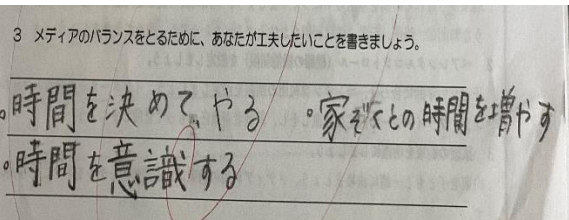 3 メディアのバランスをとるために、あなたが工夫したいことを書きましょう。
。時間を決めて、やる 。家ぞくとの時間を増やす
。時間を意識する